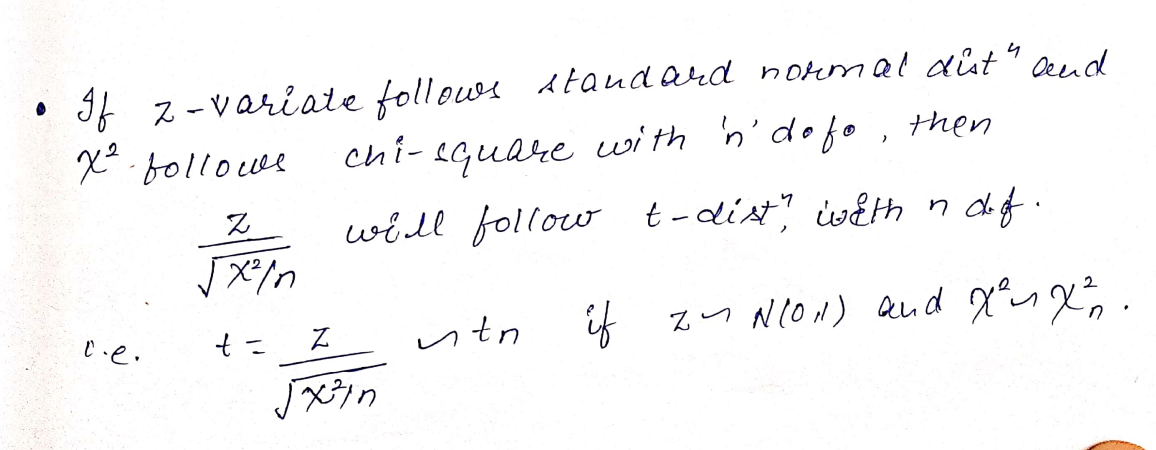 • If z-variate follows standard normal distⁿ and
χ² follows chi-square with 'n' d.f., then
z/√χ²/n will follow t-distⁿ, with n d.f.
i.e. t = z/√χ²/n ~ tn if z ~ N(0,1) and χ² ~ χ²n.